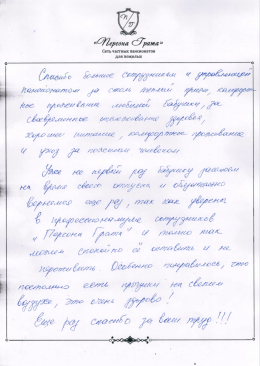 «Персона Грата»
Сеть частных пансионатов
для пожилых
Спасибо большое сотрудникам и управляющей
пансионатом за столь теплый прием, комфорт-
ное проживание любимой бабушки, за
своевременное отслеживание здоровья,
хорошее питание, комфортное проживание
и уход за пожилым человеком
Уже не первый раз бабушку завозим
на время своего отпуска и обязательно
вернемся еще раз, так как уверены
в профессионализме сотрудников
"Персона Грата" и только так
можем спокойно её оставить и не
переживать. Особенно понравилось, что
постоянно есть прогулки на свежем
воздухе, это очень здорово!
Еще раз спасибо за ваш труд!!!